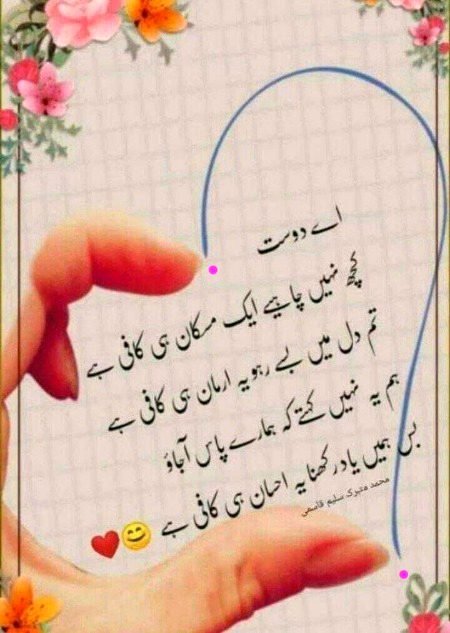 اے دوست
کچھ نہیں چاہیے ایک مسکان ہی کافی ہے
تم دل میں بسے رہو یہ ارمان ہی کافی ہے
ہم یہ نہیں کہتے کہ ہمارے پاس آجاؤ
بس ہمیں یاد رکھنا یہ احسان ہی کافی ہے 😊❤️
محمد متبرک سلیم قاسمی